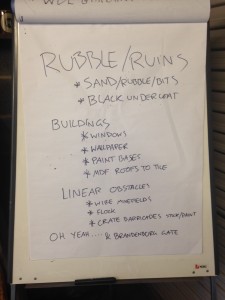 RUBBLE/RUINS
* SAND/RUBBLE/BITS
* BLACK UNDERCOAT
BUILDINGS
* WINDOWS
* WALLPAPER
* PAINT BASES
* MDF ROOFS TO TILE
LINEAR OBSTACLES
* WIRE MINEFIELDS
* FLOCK
* CRATE BARRICADES STICK/PAINT
OH YEAH..... & BRANDENBURG GATE